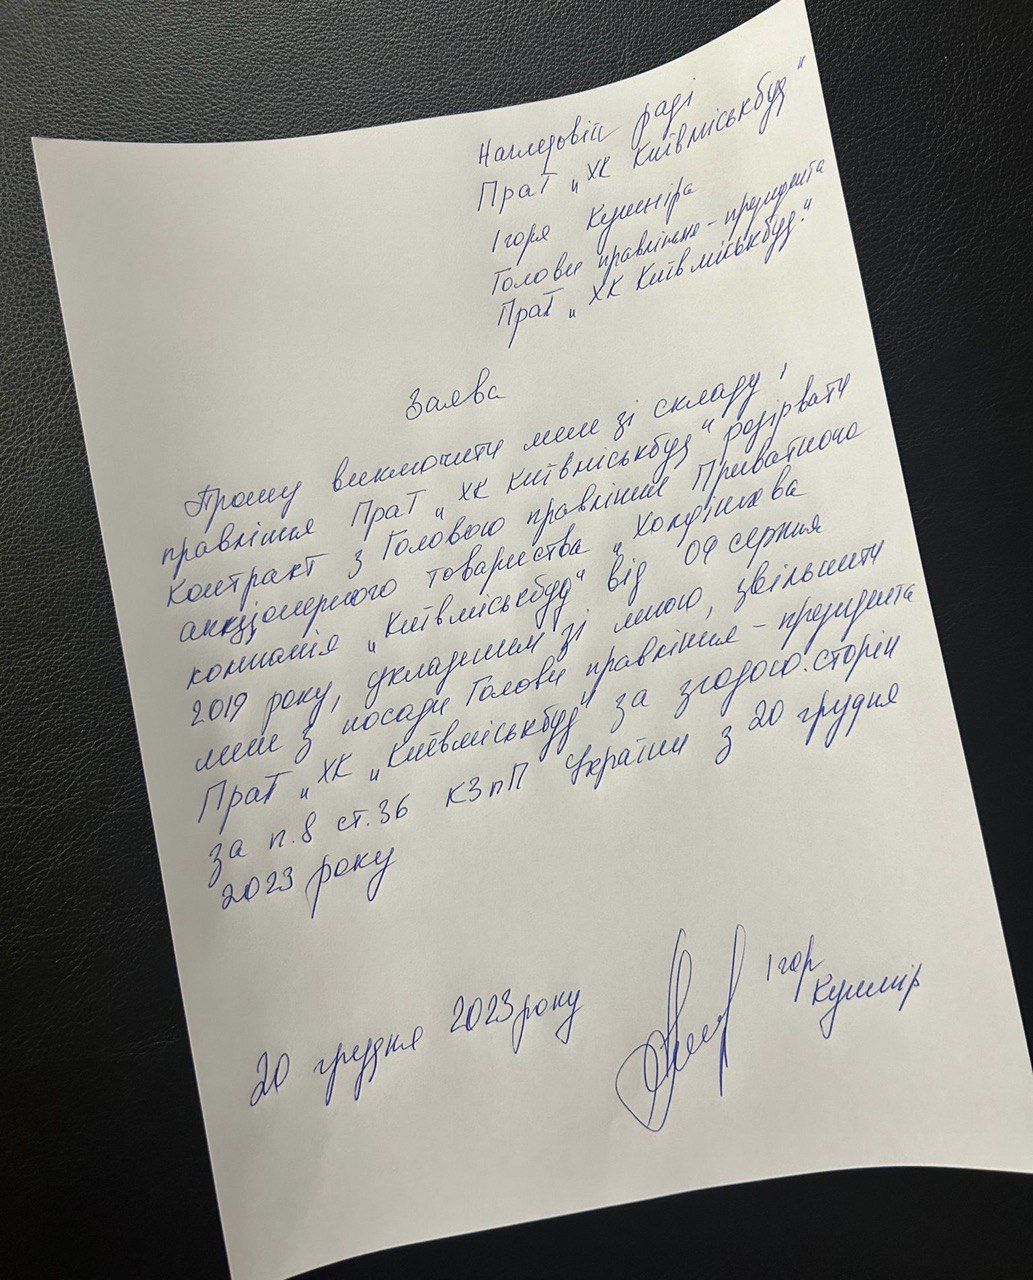 Наглядовій раді
ПраТ „ХК Київміськбуд"
Ігоря Кушніра
Голови правління-президента
ПраТ „ХК Київміськбуд."
Заява
Прошу виключити мене зі складу
правління ПраТ „ХК Київміськбуд" розірвати
Контракт з Головою правління Приватного
акціонерного товариства „Холдінгова
компанія „Київміськбуд" від 09 серпня
2019 року, укладеним зі мною, звільнити
мене з посади Голови правління-президента
ПраТ „ХК „Київміськбуд" за згодою сторін
за п.8 ст.36 КЗпП України з 20 грудня
2023 року
20 грудня 2023 року
Ігор
Кушнір